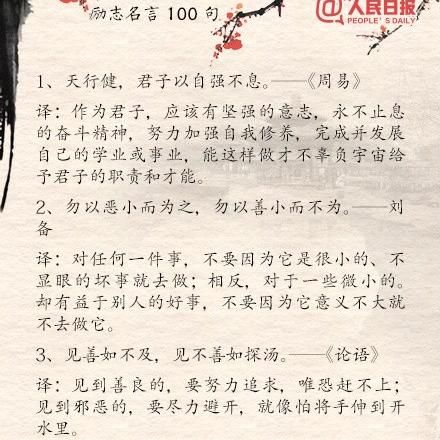 励志名言100句
@人民日报
PEOPLE'S DAILY
1、天行健，君子以自强不息。——《周易》
译：作为君子，应该有坚强的意志，永不止息
的奋斗精神，努力加强自我修养，完成并发展
自己的学业或事业，能这样做才不辜负宇宙给
予君子的职责和才能。
2、勿以恶小而为之，勿以善小而不为。——刘
备
译：对任何一件事，不要因为它是很小的、不
显眼的坏事就去做；相反，对于一些微小的。
却有益于别人的好事，不要因为它意义不大就
不去做它。
3、见善如不及，见不善如探汤。——《论语》
译：见到善良的，要努力追求，唯恐赶不上；
见到邪恶的，要尽力避开，就像怕将手伸到开
水里。